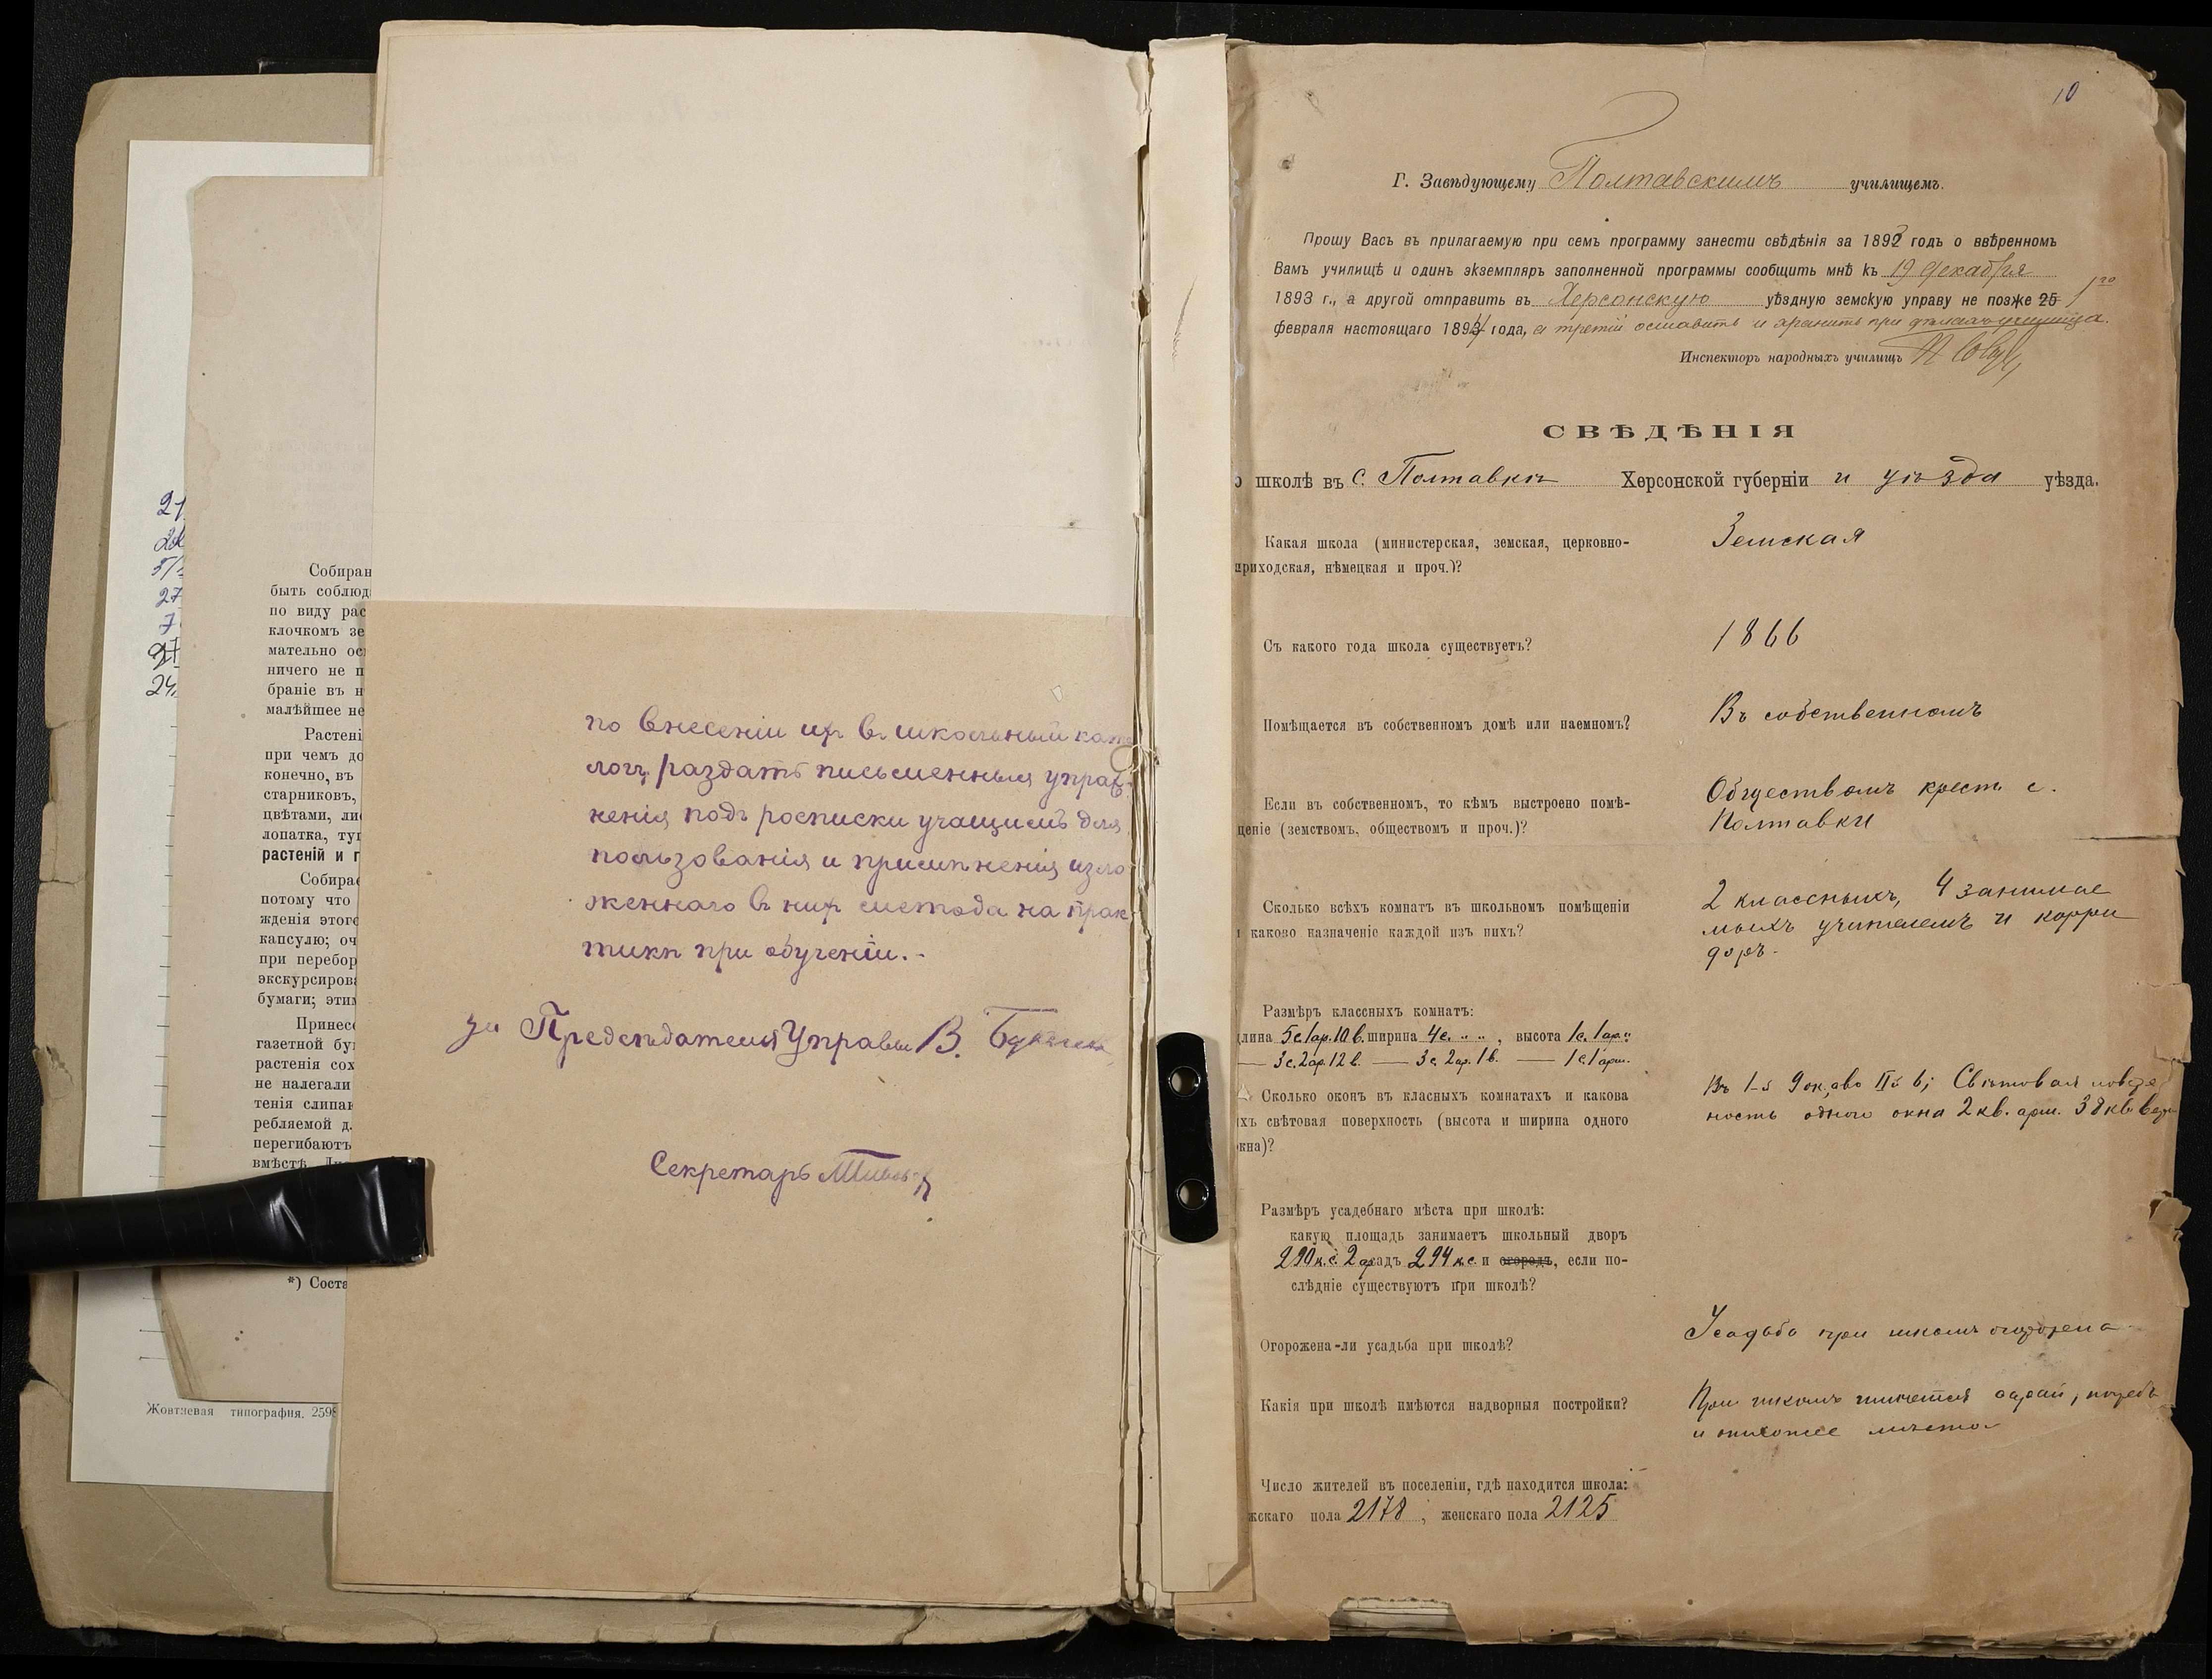 21
5/
27
7
97
24
Собиран
быть соблюд
по виду рас
клочкомъ зе
мательно ос
ничего не п
браніе въ н
малѣйшее не
Растені
при чемъ до
конечно, въ
старниковъ,
цвѣтами, ли
лопатка, туп
растеній и г
Собирае
потому что
жденія этого
капсулю; оч
при перебор
экскурсирова
бумаги; этим
Принесе
газетной бу
растенія сох
не налегали
тенія слипан
ребляемой д
перегибаютъ
вмѣстѣ
*) Соста
Жовтневая типография. 2598
по внесеніи ихъ въ школьный ката
логъ, раздать письменныя упраж-
ненія подъ росписки учащимъ для
пользованія и примѣненія изло
женнаго въ нихъ метода на прак
тикѣ при обученіи.-
за Предсѣдателя Управы В.
Секретарь
10
Г. Завѣдующему Полтавскимъ училищемъ.
Прошу Васъ въ прилагаемую при семъ программу занести свѣдѣнія за 1893 годъ о ввѣренномъ
Вамъ училищѣ и одинъ экземпляръ заполненной программы сообщить мнѣ къ 19 декабря
1893 г., а другой отправить въ Херсонскую уѣздную земскую управу не позже 25 1го
февраля настоящаго 1894 года, а третій оставить и хранить при дѣлахъ училища.
Инспекторъ народныхъ училищъ
СВѢДѢНІЯ
о школѣ въ с. Полтавкѣ Херсонской губерніи и уѣзда уѣзда.
Какая школа (министерская, земская, церковно-
приходская, нѣмецкая и проч.)?
Земская
Съ какого года школа существуетъ?
1866
Помѣщается въ собственномъ домѣ или наемномъ?
Въ собственномъ
Если въ собственномъ, то кѣмъ выстроено помѣ-
щеніе (земствомъ, обществомъ и проч.)?
Обществомъ крест. с.
Полтавки
Сколько всѣхъ комнатъ въ школьномъ помѣщеніи
и каково назначеніе каждой изъ нихъ?
2 классныхъ, 4 занимае
мыхъ учителемъ и корри
доръ.
Размѣръ классныхъ комнатъ:
длина 5с.1ар.10в. ширина 4с. „ „ , высота 1с.1ар. „
— 3с.2ар.12в. — 3с.2ар.1в. — 1с.1арш.
Сколько оконъ въ класныхъ комнатахъ и какова
ихъ свѣтовая поверхность (высота и ширина одного
окна)?
Въ 1-й 9 ок., а во IIй 6; Свѣтовая поверх
ность одного окна 2 кв. арш. 38 кв. вер.
Размѣръ усадебнаго мѣста при школѣ:
какую площадь занимаетъ школьный дворъ
290 к.с. 2 садъ 294 к.с. и огородъ, если по-
слѣдніе существуютъ при школѣ?
Огорожена-ли усадьба при школѣ?
Усадьба при школѣ огорожена
Какія при школѣ имѣются надворныя постройки?
При школѣ имѣется сарай, погребъ
и отхожее мѣсто
Число жителей въ поселеніи, гдѣ находится школа:
жскаго пола 2178, женскаго пола 2125